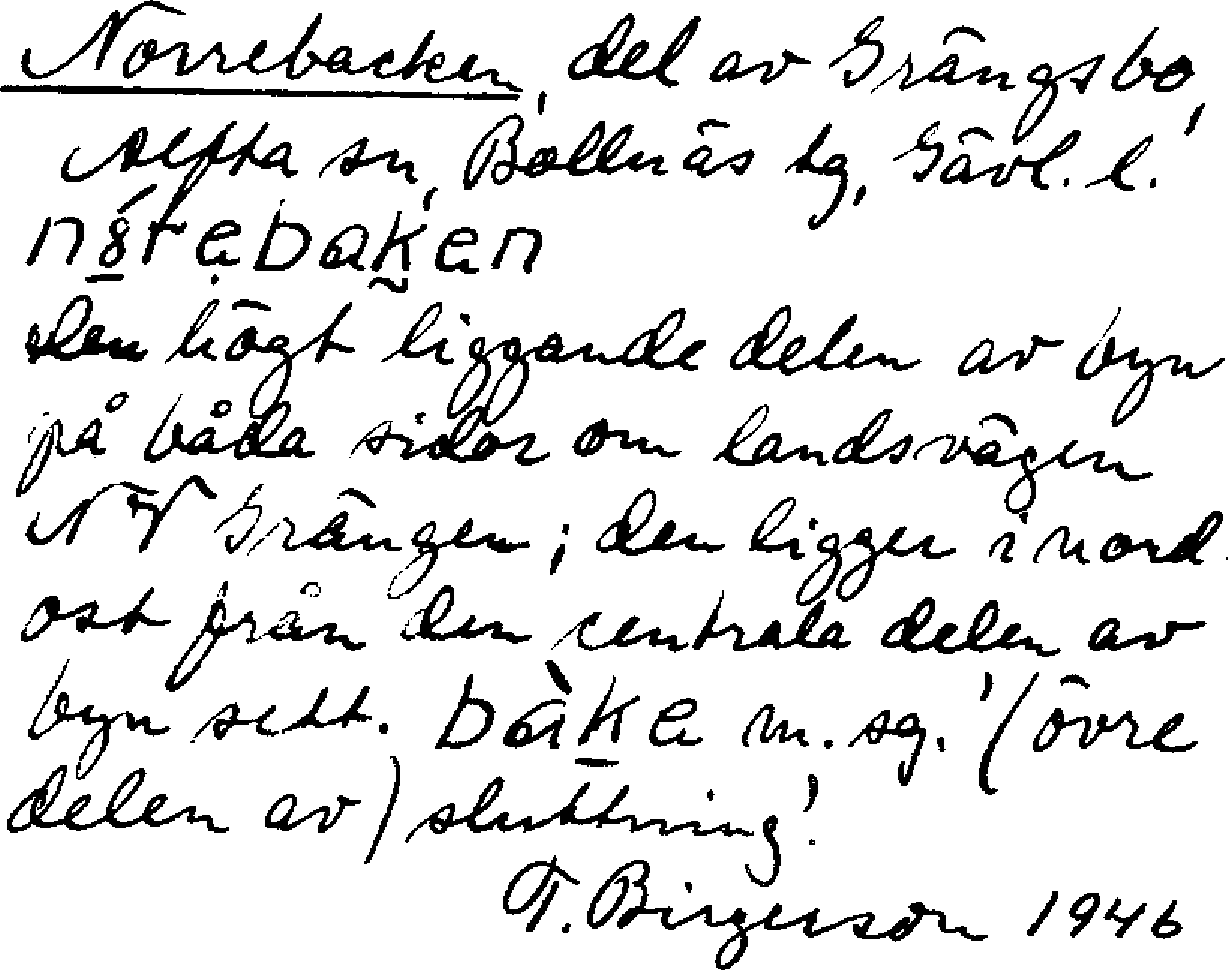 Norrebacken, del av Grängsbo,
Alfta sn, Bollnäs tg, Gävl. l.
den högt liggande delen av byn
på båda sidor om landsvägen
NV Grängen; den ligger i nord-
ost från den centrala delen av
byn sett. bàke m. sg. '(övre
delen av) sluttning'.
T. Birgerson 1946